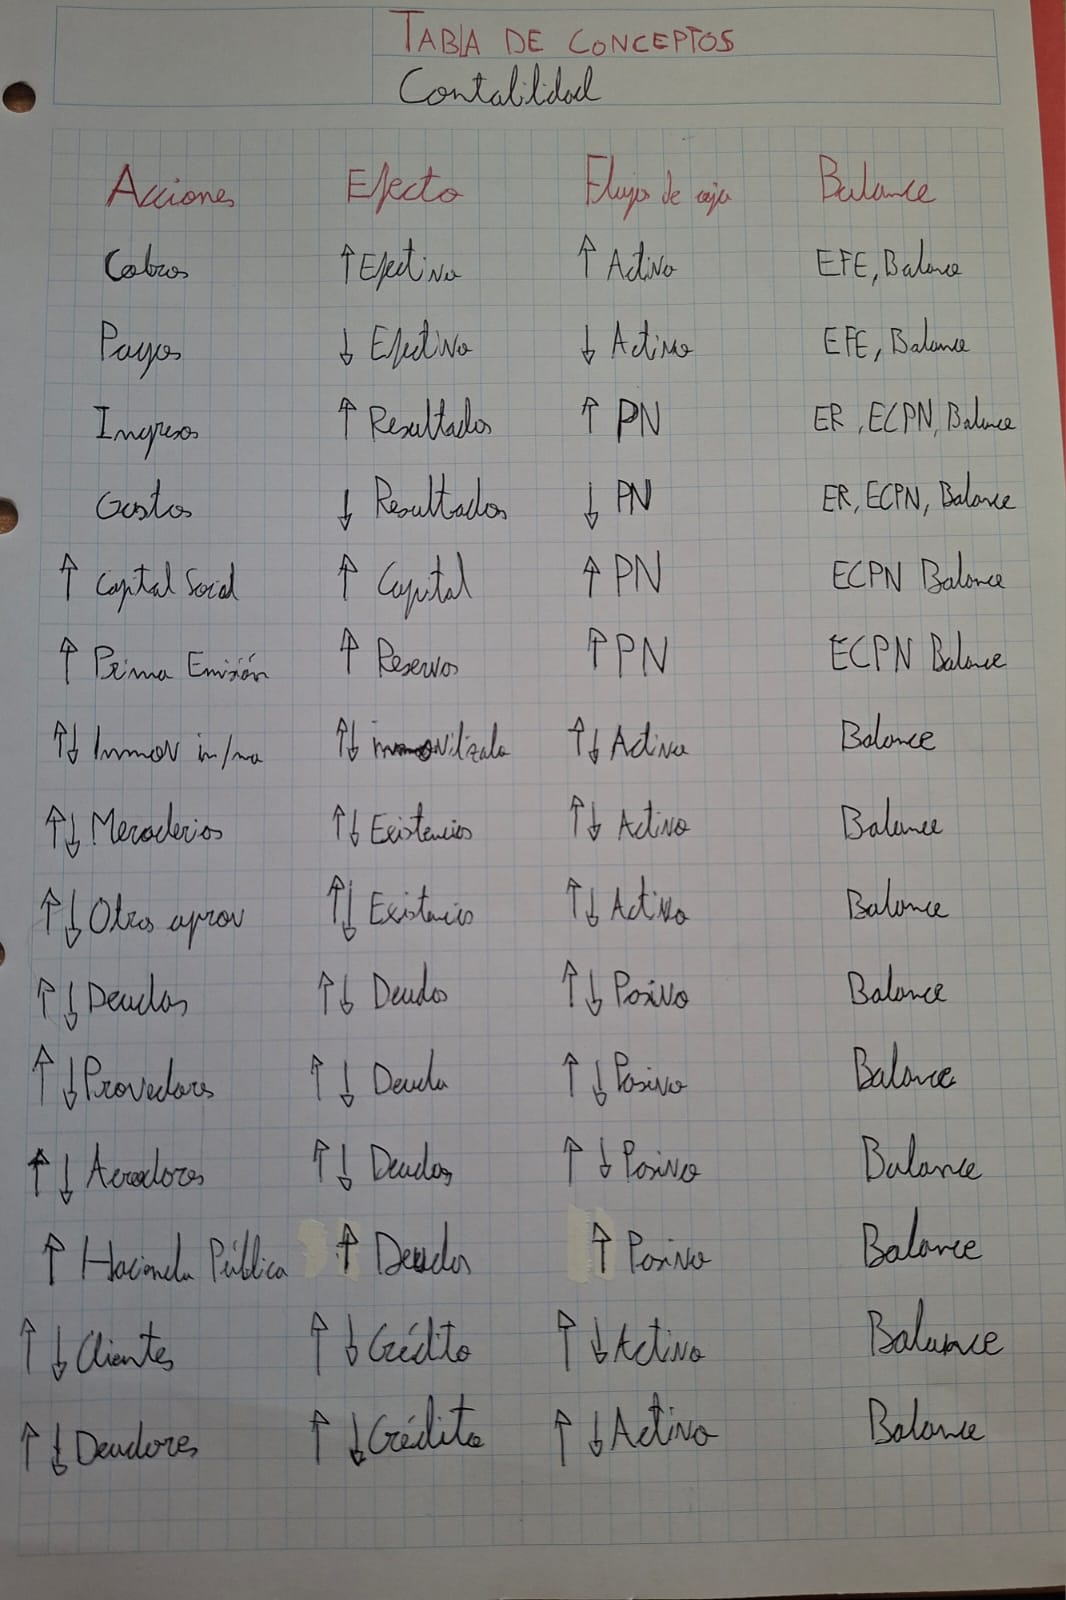 TABLA DE CONCEPTOS
Contabilidad
Acciones Efecto Flujo de caja Balance
Cobros ↑ Efectivo ↑ Activo EFE, Balance
Pagos ↓ Efectivo ↓ Activo EFE, Balance
Ingresos ↑ Resultados ↑ PN ER, ECPN, Balance
Gastos ↓ Resultados ↓ PN ER, ECPN, Balance
↑ Capital Social ↑ Capital ↑ PN ECPN Balance
↑ Prima Emisión ↑ Reservas ↑ PN ECPN Balance
↑↓ Inmov in/ma ↑↓ inmovilizado ↑↓ Activo Balance
↑↓ Mercaderias ↑↓ Existencias ↑↓ Activo Balance
↑↓ Otros aprov ↑↓ Existencias ↑↓ Activo Balance
↑↓ Deudas ↑↓ Deudas ↑↓ Pasivo Balance
↑↓ Provedores ↑↓ Deuda ↑↓ Pasivo Balance
↑↓ Acredores ↑↓ Deudas ↑↓ Pasivo Balance
↑ Hacienda Pública ↑ Deudas ↑ Pasivo Balance
↑↓ Clientes ↑↓ Crédito ↑↓ Activo Balance
↑↓ Deudores ↑↓ Crédito ↑↓ Activo Balance